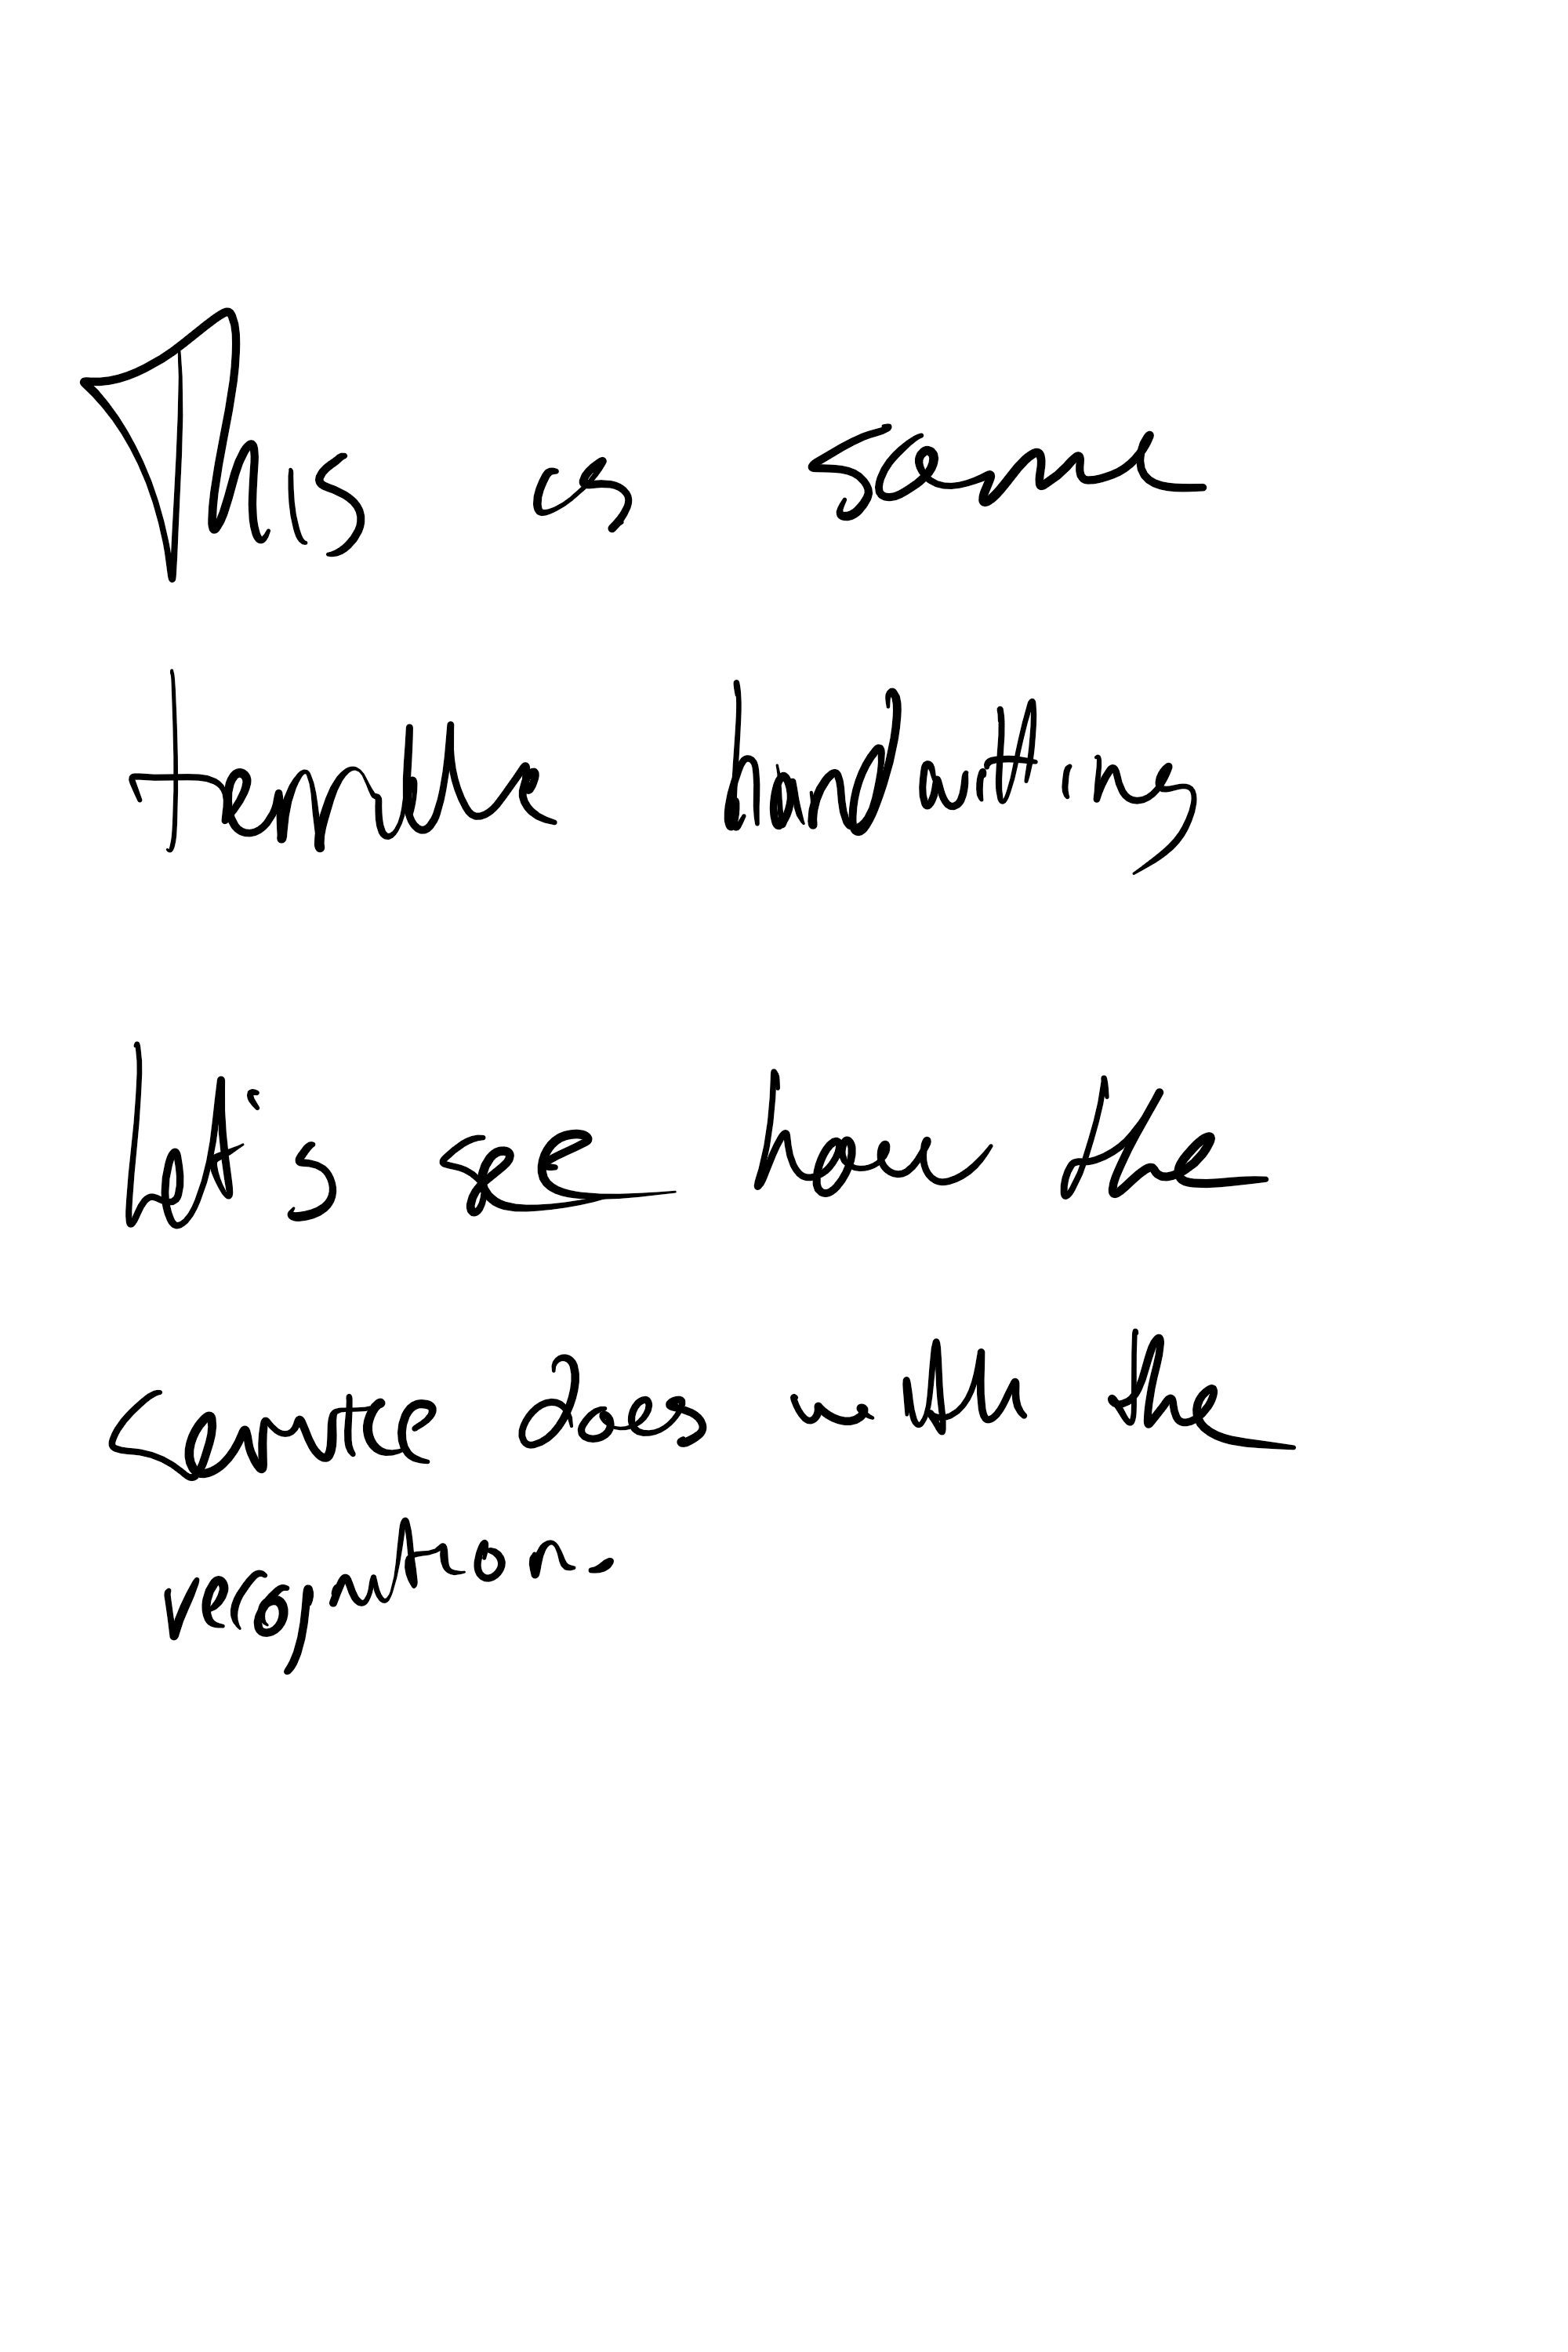 This is some
terrible handwriting
Let's see how the
service does with the
recognition.